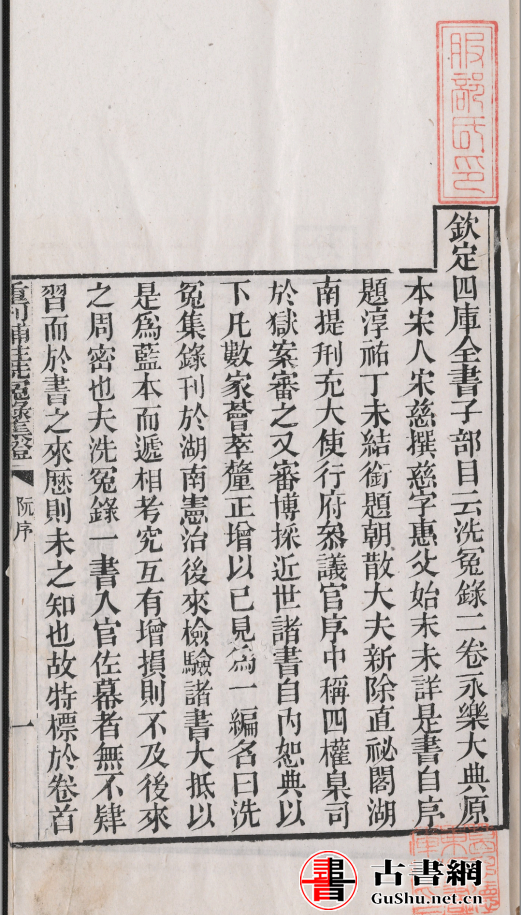 服部氏印
欽定四庫全書子部目云洗冤錄二卷永樂大典原
本宋人宋慈撰慈字惠父始末未詳是書自序
題淳祐丁未結銜題朝散大夫新除直祕閣湖
南提刑充大使行府叅議官序中稱四權臬司
於獄案審之又審博採近世諸書自內恕典以
下凡數家薈萃釐正增以己見為一編名曰洗
冤集錄刊於湖南憲治後來檢驗諸書大抵以
是爲藍本而遞相考究互有增損則不及後來
之周密也夫洗冤錄一書入官佐幕者無不肄
習而於書之來歷則未之知也故特標於卷首
重刊補註洗冤錄集證
阮序
一
書
古書網
GuShu.net.cn